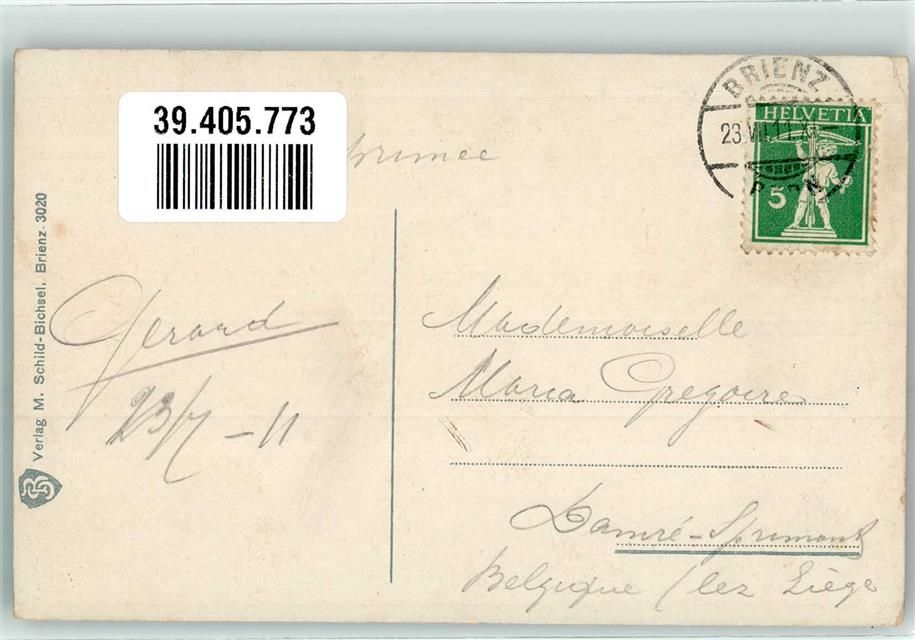 39.405.773
BRIENZ
23.VII.11
HELVETIA
5
Verlag M. Schild-Bichsel. Brienz. 3020
Gerard
23/7 - 11
Mademoiselle
Maria Gregoire
Damré-Sprimont
Belgique (lez Liège